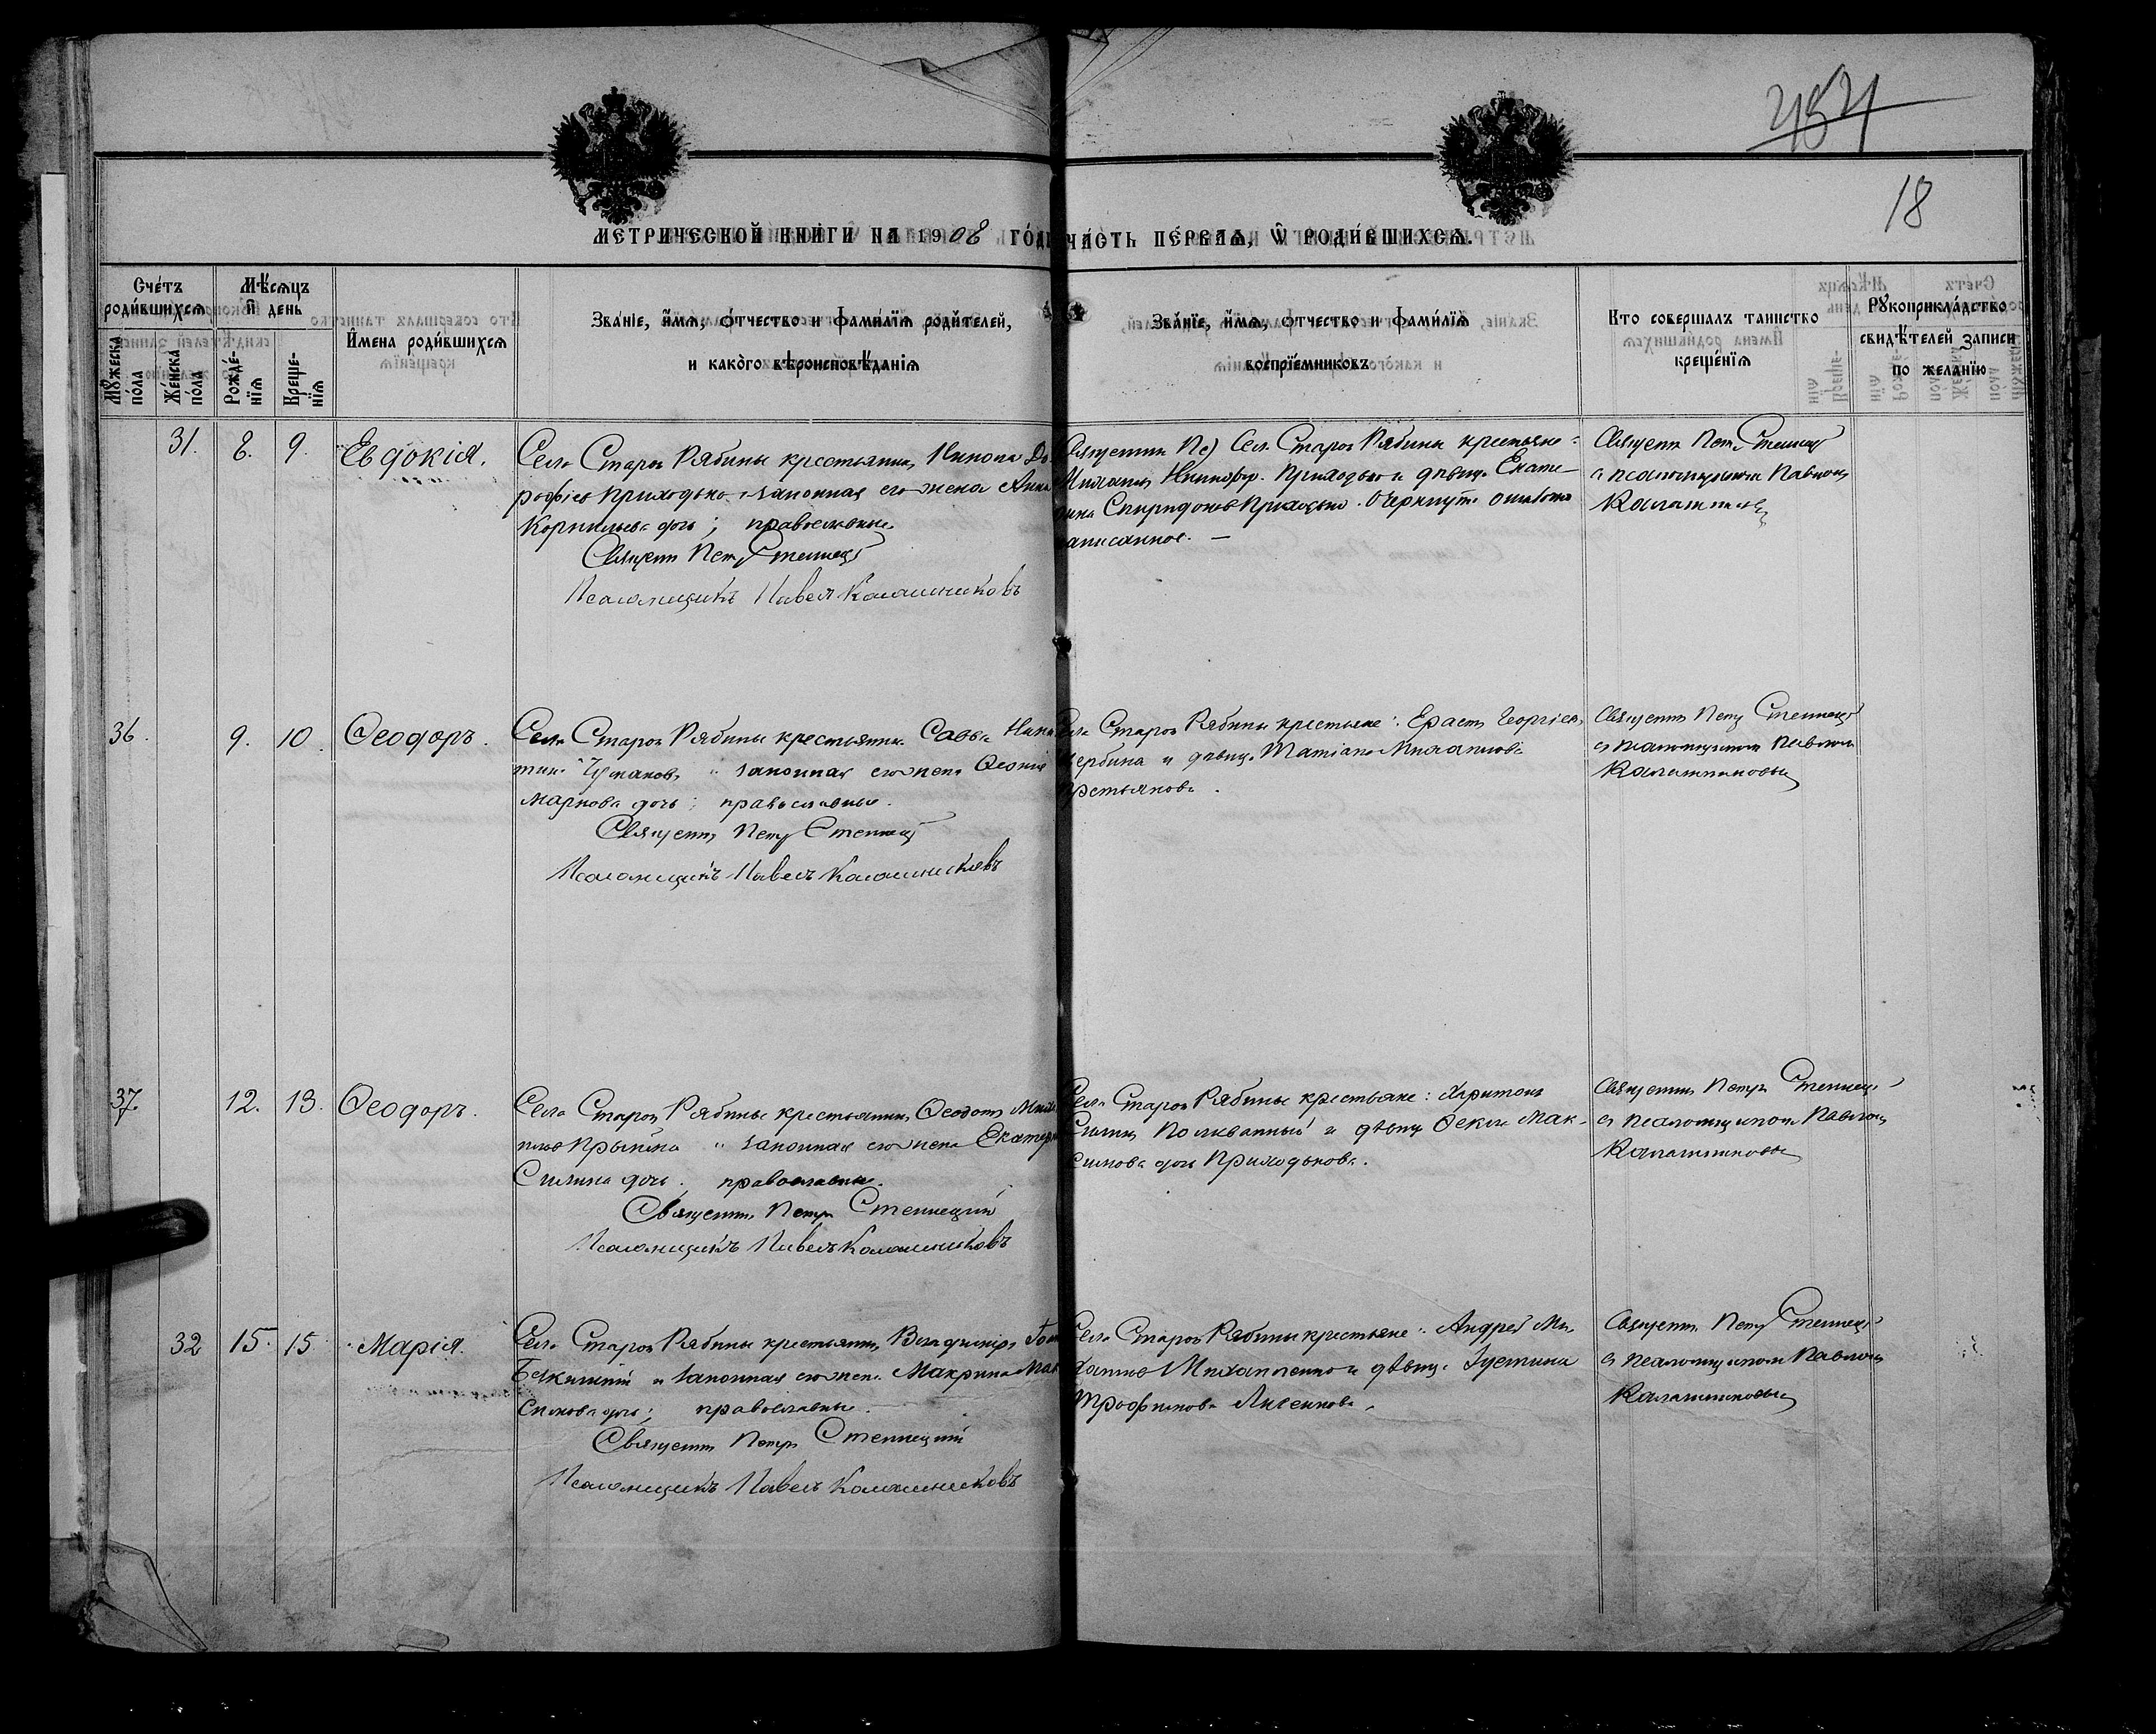 454
18
МЕТРИЧЕСКОЙ КНИГИ НА 1908 ГОДЪ
ЧАСТЬ ПЕРВАЯ, Ѡ РОДИВШИХСЯ.
Счетъ родившихся
Мужеска пола
Женска пола
Мѣсяцъ и день
Рожденія
Крещенія
Имена родившихся
Званіе, имя, отчество и фамилія родителей,
и какого вѣроисповѣданія
Званіе, имя, отчество и фамилія
воспріемниковъ
Кто совершалъ таинство
крещенія
Рукоприкладство
свидѣтелей записи
по желанію
31. 8. 9. Евдокія.
Села Старой Рябины крестьянинъ
Приходько и законная его жена Анна
Корнильева дочь; православные
Священ. Петръ Стеллецкій
Псаломщикъ Павелъ Калашниковъ
Села Старой Рябины крестьяне:
Приходько и дѣвица Екате-
рина Спиридонова Приходько. Очеркнуто ошибочно
написанное. —
Священ. Петръ Стеллецкій
с псаломщикомъ Павломъ
Калашниковымъ
36. 9. 10. Ѳеодоръ.
Села Старой Рябины крестьянинъ Савва
Чумаковъ и законная его жена
Маркова дочь; православные.
Священ. Петръ Стеллецкій
Псаломщикъ Павелъ Калашниковъ
Села Старой Рябины крестьяне: Ерастъ Георгіевъ
Щербина и дѣвица Татіана Михаилова
Крестьянова.
Священ. Петръ Стеллецкій
съ псаломщикомъ Павломъ
Калашниковымъ
37. 12. 13. Ѳеодоръ.
Села Старой Рябины крестьянинъ Ѳеодотъ
и законная его жена Екатерина
дочь. православные.
Священ. Петръ Стеллецкій
Псаломщикъ Павелъ Калашниковъ
Села Старой Рябины крестьяне: Харитонъ
и дѣвица Ѳекла Мак-
симова дочь Приходькова.
Священ. Петръ Стеллецкій
съ псаломщикомъ Павломъ
Калашниковымъ
32 15. 15 Марія.
Села Старой Рябины крестьянинъ Владиміръ
и законная его жена Макрина Мак
симова дочь; православные.
Священ. Петръ Стеллецкій
Псаломщикъ Павелъ Калашниковъ
Села Старой Рябины крестьяне: Андрей Ми-
хаиловъ Михайленко и дѣвица Іустина
Трофимова
Священ. Петръ Стеллецкій
съ псаломщикомъ Павломъ
Калашниковымъ